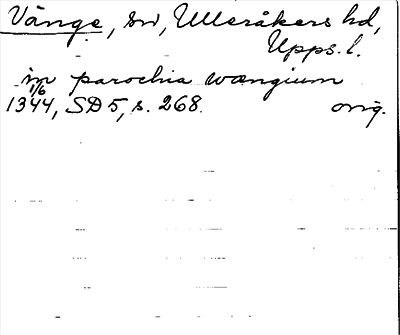 Vänge, sn, Ulleråkers hd,
Upps. l.
in parochia wængium
1/6
1344, SD 5, s. 268. orig.